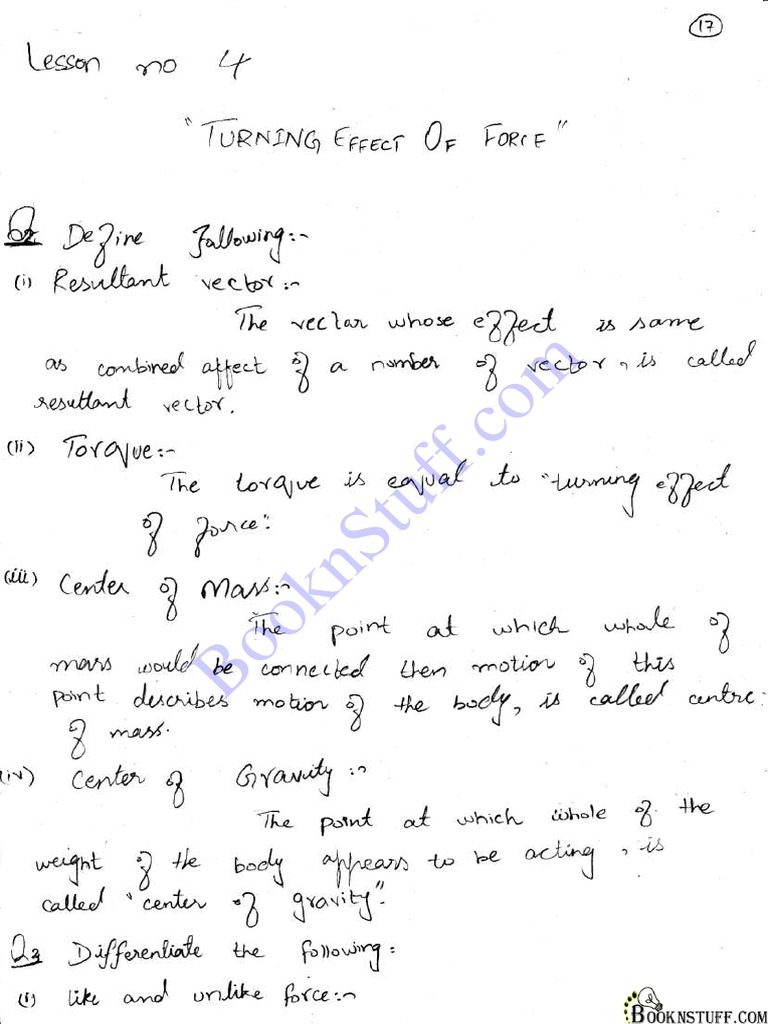 17
Lesson no 4
"TURNING EFFECT OF FORCE"
Q2 Define Following:-
(i) Resultant vector:-
The vectar whose effect is same
as combined affect of a number of vector, is called
resultant vector.
(ii) Torque:-
The torque is equal to "turning effect
of force".
(iii) Center of Mass:-
The point at which whole of
mass would be connected then motion of this
point describes motion of the body, is called centre
of mass.
(iv) Center of Gravity:-
The point at which whole of the
weight of the body appears to be acting, is
called "center of gravity".
Q3 Differentiate the following:
(i) like and unlike force:-
BooknStuff.com
BOOKNSTUFF.COM